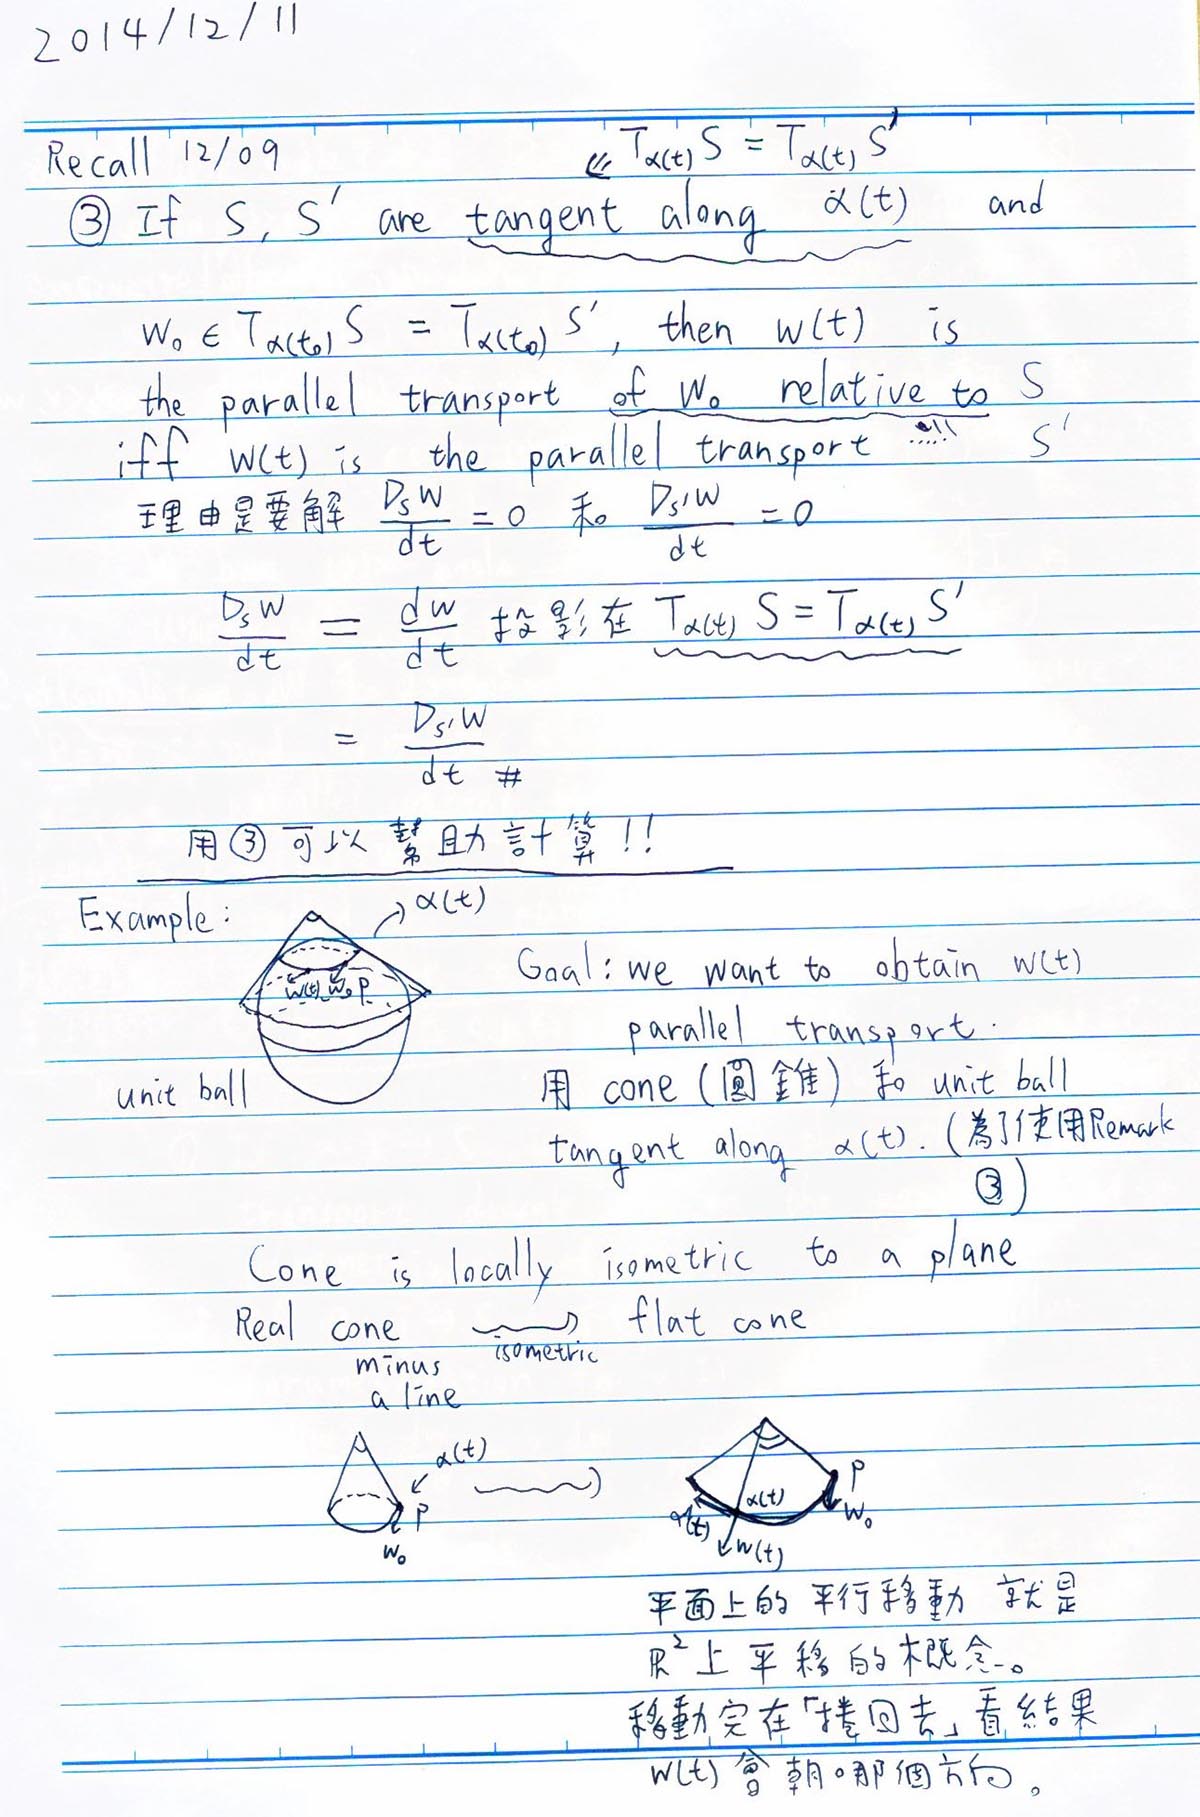 2014/12/11
Recall 12/09
⇙ T_{α(t)} S = T_{α(t)} S'
③ If S, S' are tangent along α(t) and
w₀ ∈ T_{α(t₀)} S = T_{α(t₀)} S', then w(t) is
the parallel transport of w₀ relative to S
iff w(t) is the parallel transport ..... S'
理由是要解 D_S w/dt = 0 和 D_{S'} w/dt = 0
D_S w/dt = dw/dt 投影在 T_{α(t)} S = T_{α(t)} S'
= D_{S'} w/dt #
用③可以幫助計算!!
Example:
α(t)
w(t) w₀ P
unit ball
Goal: we want to obtain w(t)
parallel transport.
用 cone (圓錐) 和 unit ball
tangent along α(t). (為了使用Remark
③)
Cone is locally isometric to a plane
Real cone
minus
a line
isometric
flat cone
α(t)
P
w₀
P
w₀
α(t)
α'(t)
w(t)
平面上的平行移動 就是
ℝ² 上平移的概念。
移動完在「捲回去」看結果
w(t) 會朝哪個方向。